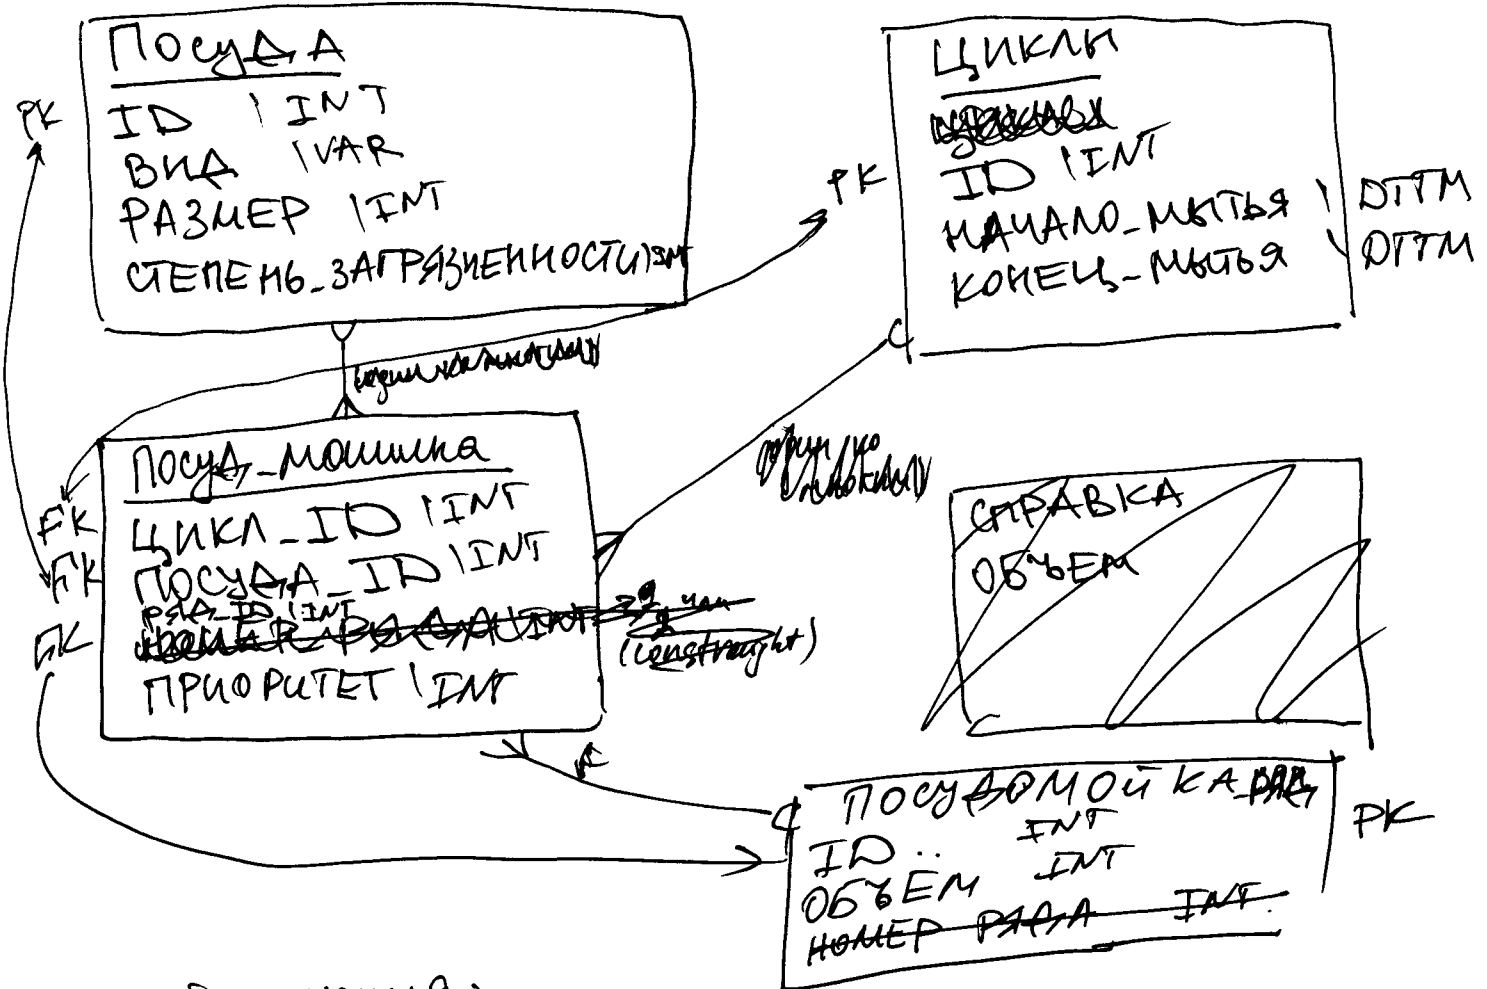 ПОСУДА
PK
ID \ INT
ВИД \ VAR
РАЗМЕР \ INT
СТЕПЕНЬ_ЗАГРЯЗНЕННОСТИ \ INT
ЦИКЛЫ
PK
ID \ INT
НАЧАЛО_МЫТЬЯ \ DTTM
КОНЕЦ_МЫТЬЯ \ DTTM
ПОСУД_МОШИЛКА
FK
ЦИКЛ_ID \ INT
FK
ПОСУДА_ID \ INT
РЯД_ID \ INT
FK
НОМЕР РЯДА \ INT
или
(constraight)
ПРИОРИТЕТ \ INT
СПРАВКА
ОБЪЕМ
ПОСУДОМОЙКА_РЯД
PK
ID INT
ОБЪЁМ INT
НОМЕР РЯДА INT